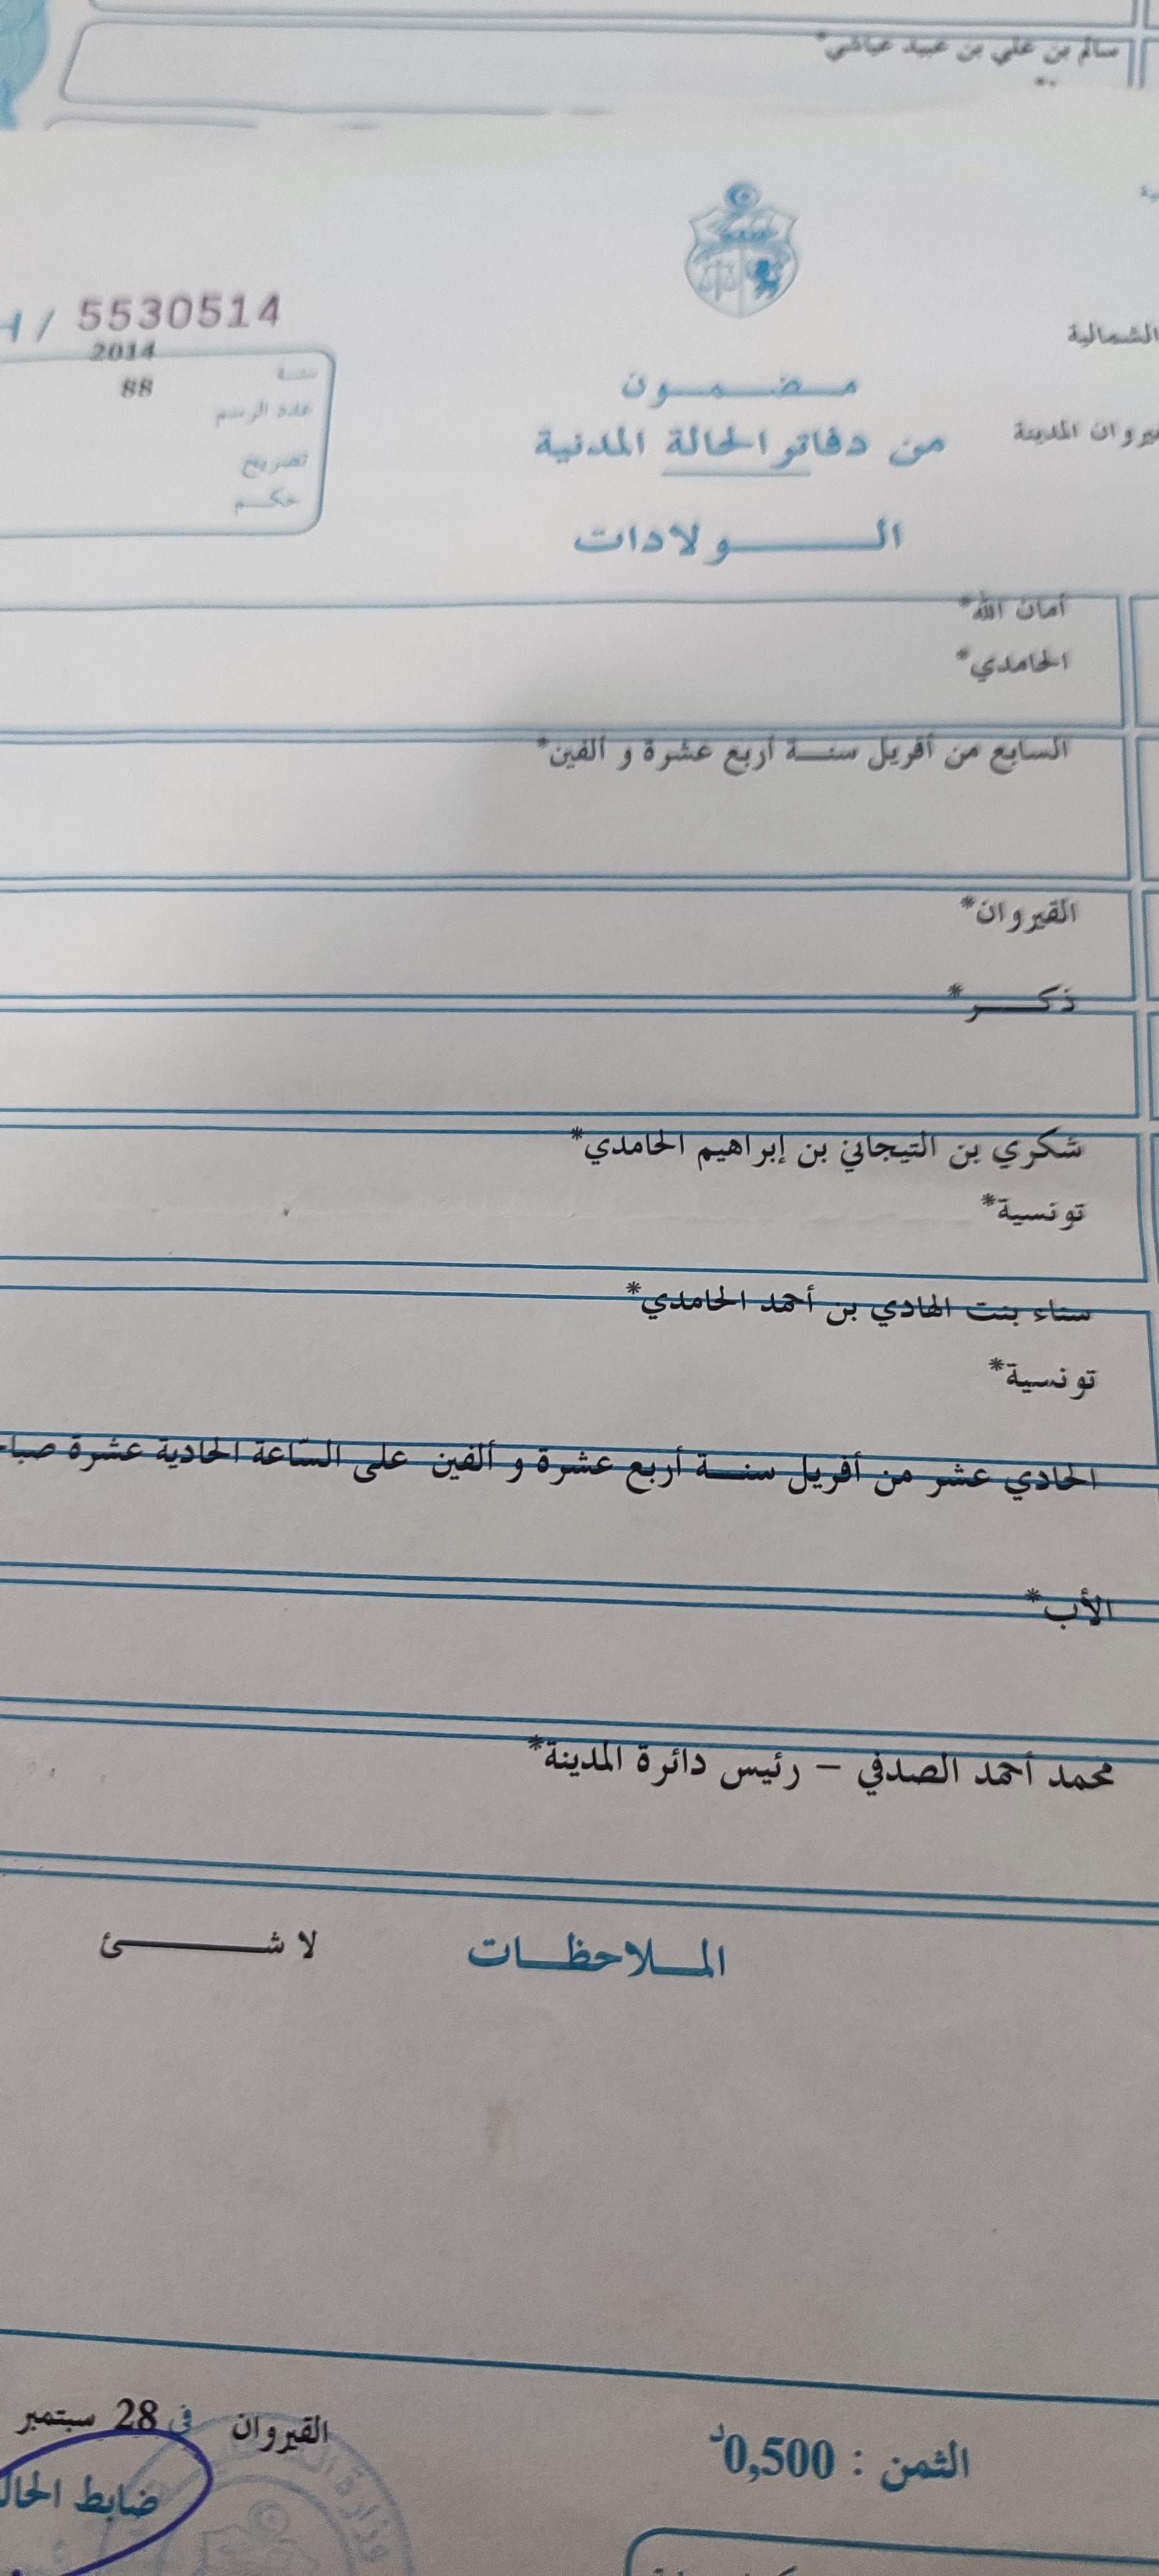 سالم بن علي بن عبيد عياشي*
الشمالية
H / 5530514
2014
سنة
88
عدد الرسم
تصريح
حكم
مضمون
من دفاتر الحالة المدنية
القيروان المدينة
الولادات
أمان الله*
الحامدي*
السابع من أفريل سنة أربع عشرة و ألفين*
القيروان*
ذكر*
شكري بن التيجاني بن إبراهيم الحامدي*
تونسية*
سناء بنت الهادي بن أحمد الحامدي*
تونسية*
الحادي عشر من أفريل سنة أربع عشرة و ألفين على السّاعة الحادية عشرة صباح
الأب*
محمد أحمد الصدفي – رئيس دائرة المدينة*
الملاحظات
لا شئ
القيروان في 28 سبتمبر
الثمن : 0,500د
ضابط الحال
وزارة